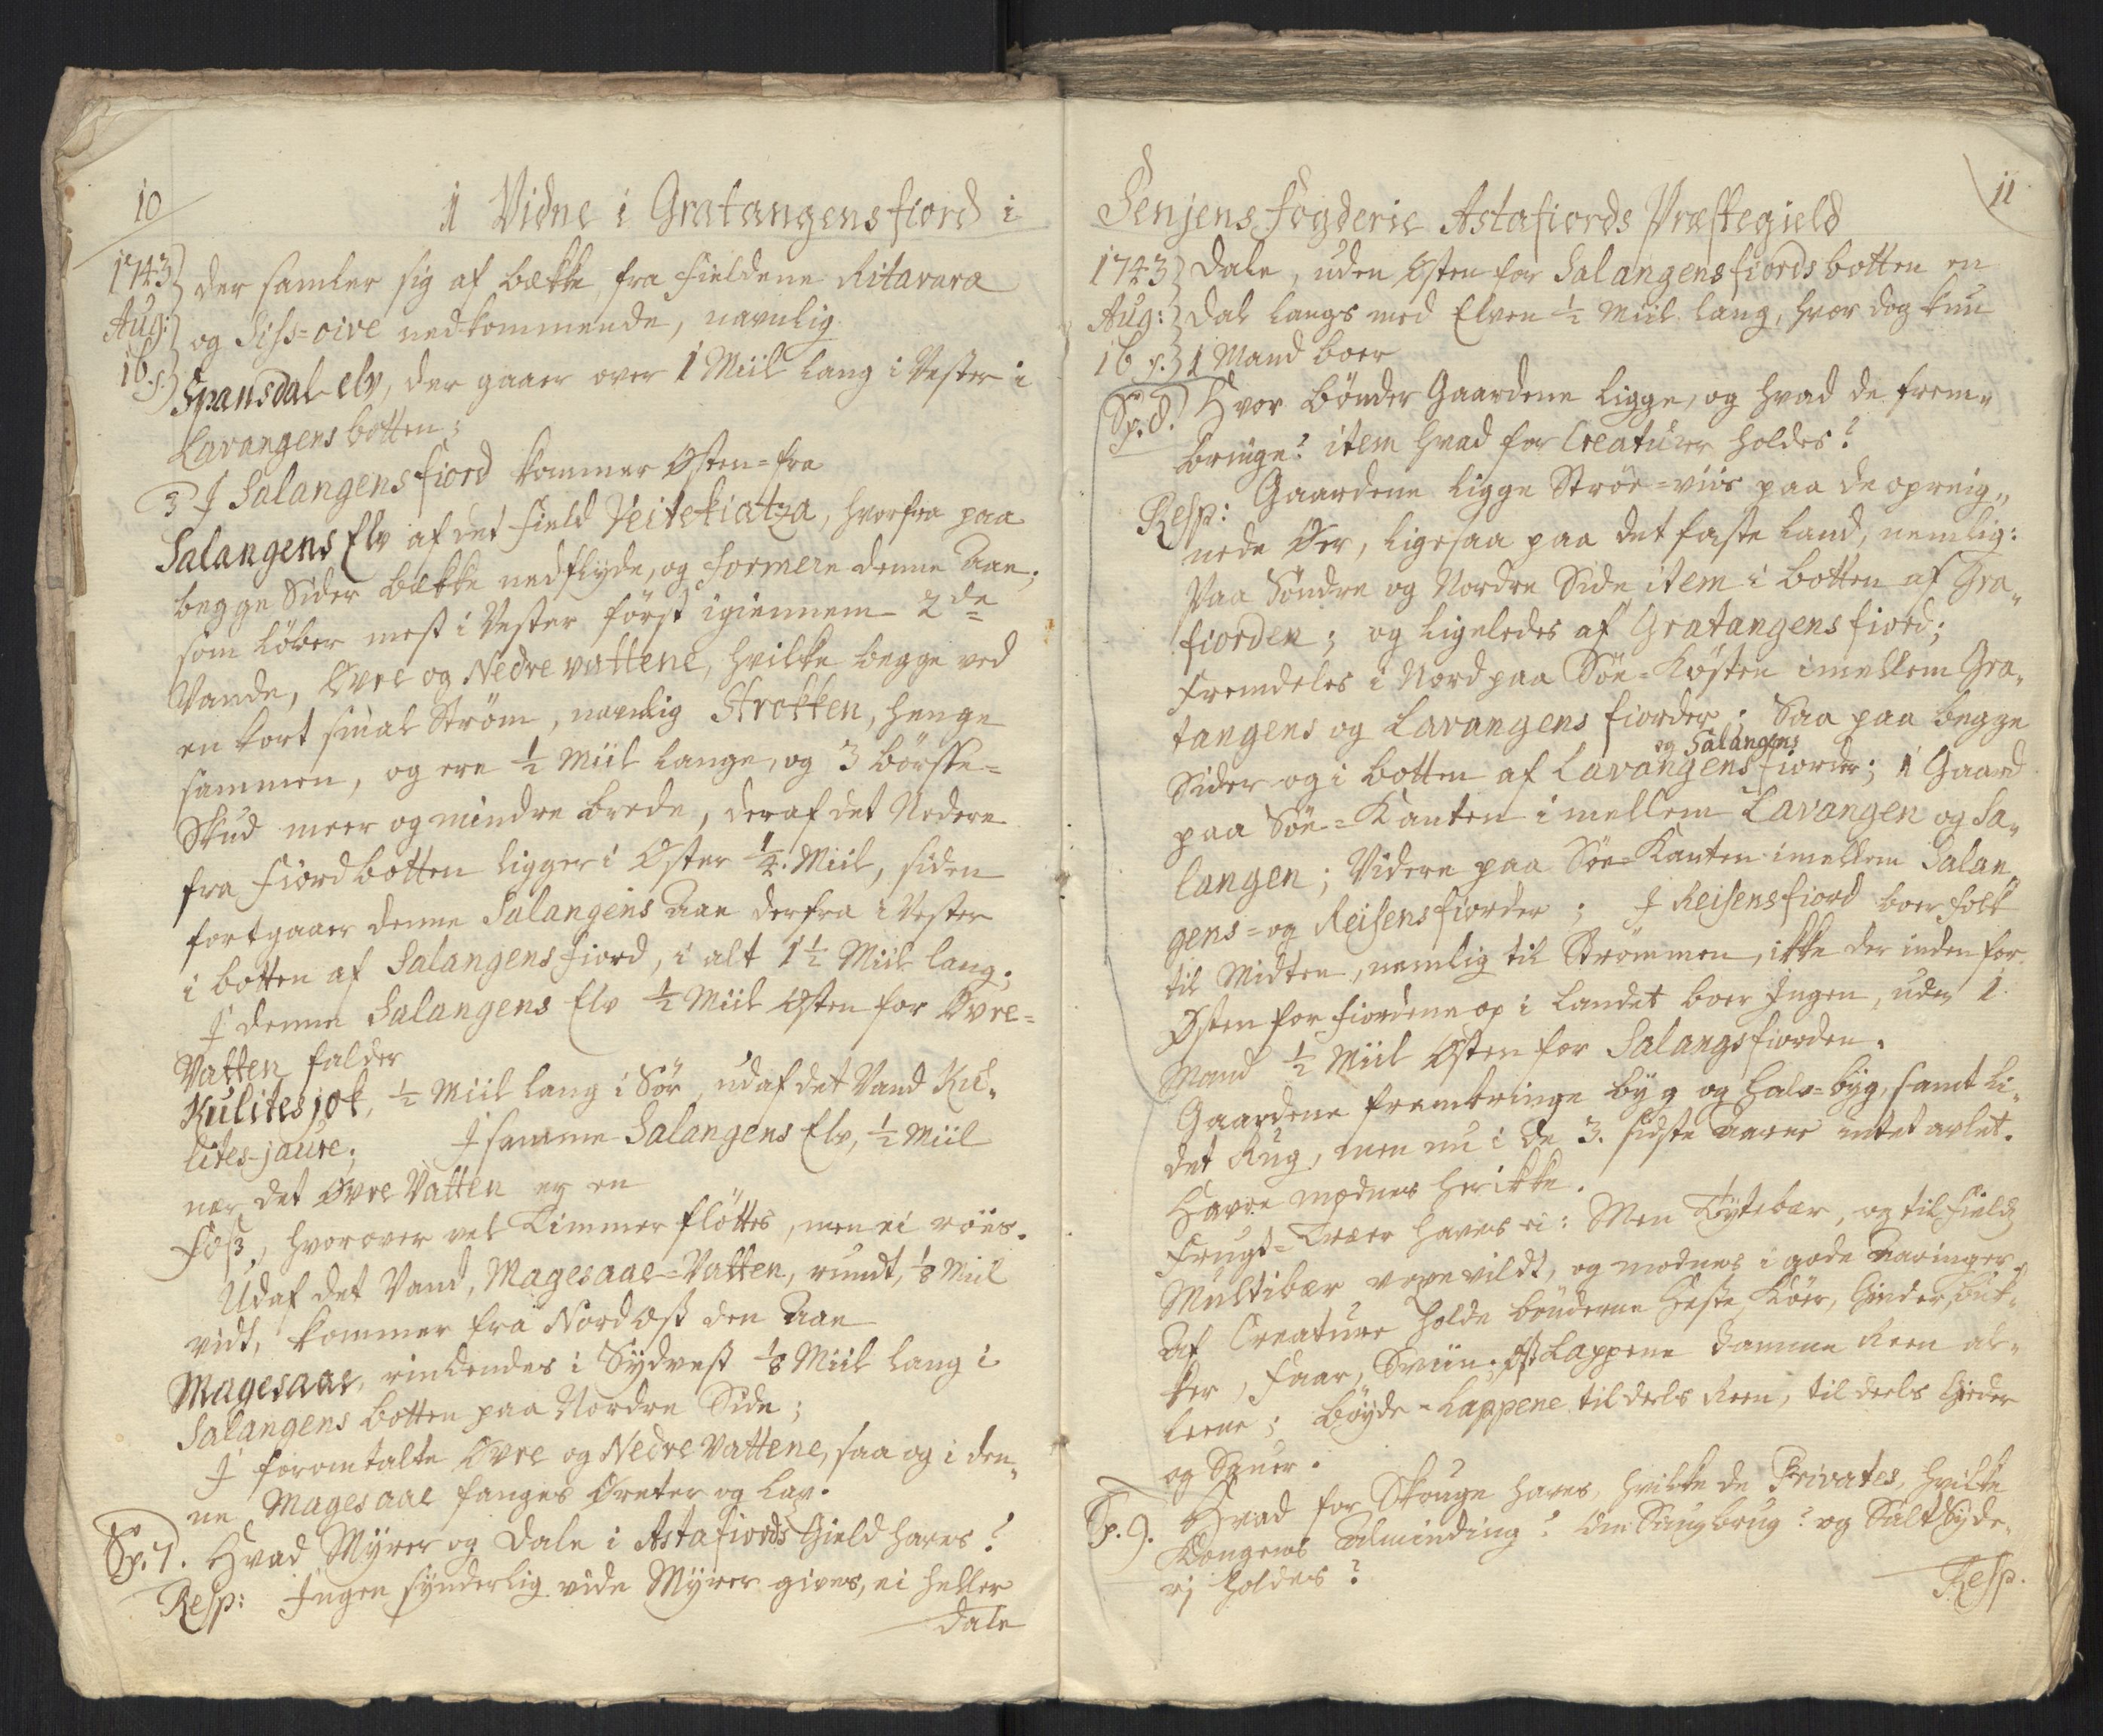 10
1 Vidne i Gratangensfiord i
1743 der samler sig af bække, fra fieldene Ritavara
Aug: og Siss-oive nedkommende, navnlig
16 s. Spansdal-elv, der gaaer over 1 Miil lang i Vester i
Lavangens botten;
3 J Salangensfiord kommer Østen-fra
Salangens Elv af det field Veitekiatza, hvorfra paa
begge Sider bække nedflyde, og formere denne Aae;
som løber mest i Vester først igiennem 2de
Vande, Øvre og Nedre vattene, hvilke begge ved
en kort smal Strøm, navnlig Strokken, henge
sammen, og ere ½ Miil lange, og 3 börsse-
Skud meer og mindre brede, deraf det Nedere
fra fiordbotten ligger i Øster ¼ Miil, siden
fortgaaer denne Salangens Aae derfra i Vester
i botten af Salangensfiord, i alt 1½ Miil lang;
J denne Salangens Elv ½ Miil Østen for Øvre-
Vatten falder
Kulitesjok, ½ Miil lang i Sör, udaf det Vand Ku-
lites-jaure; J samme Salangens Elv, ½ Miil
ner det Øvre Vatten er en
Foss, hvorover vel Timmer flöttes, men ei röes.
Udaf det Vand, Magesaae-Vatten, rundt, ⅛ Miil
vidt, kommer fra Nordost den Aae
Magesaae, rindendes i Sydvest ⅛ Miil lang i
Salangens botten paa Nordre Side;
J foromtalte Øvre og Nedre Vattene, saa og i den-
ne Magesaae fanges Ørreter og Lax.
Sp. 7. Hvad Myrer og Dale i Astafiords Gield haves?
Resp: Ingen synderlig vide Myrer gives, ei heller
Dale
11
Senjens Fogderie Astafiords Præstegield
1743 Dale, uden Østen for Salangensfiordsbotten en
Aug: Dal langs med Elven ½ Miil lang, hvor dog kun
16 s. 1 Mand boer
Sp. 8. Hvor bönder Gaardene ligge, og hvad de frem-
bringe? item hvad for Creaturer holdes?
Resp: Gaardene ligge Ströe-viis paa de opreig-
nede Øer, ligesaa paa det faste Land, nemlig:
Paa Söndre og Nordre Side item i botten af Gra-
fiorden; og ligeledes af Gratangensfiord;
Fremdeles i Nord paa Söe-Kösten imellem Gra-
tangens og Lavangens fiorder; Saa paa begge
Sider og i botten af Lavangens og Salangens fiorder; 1 Gaard
paa Söe-Kanten imellem Lavangen og Sa-
langen; Videre paa Söe-Kanten imellem Salan-
gens- og Reisensfiorder; J Reisensfiord boer folk
til Midten, nemlig til Strömmen, ikke der inden for
Østen for fiordene op i Landet boer Ingen, uden 1
Mand ½ Miil Østen for Salangsfiorden.
Gaardene frembringe byg og halv-byg, samt li-
det Rug, men nu i de 3. sidste Aarer intet avlet.
Havre modnes her ikke.
Frugt-Træer haves ei: Men Tytebær, og til fields
Multibær voxe vildt, og modnes i gode Aaringer.
Af Creature holde bönderne Heste, Köer, Gieder, Buk-
ker, Faar, Sviin; Øst Lappene Tamme Reen al-
leene; Böyde-Lappene til deels Reen, til deels Gieder
og Souer.
Sp. 9. Hvad for Skouge haves, hvilke de Privates, hvilke
Kongens Alminding? Om Saugbrug? og Saltsyde-
rj holdes?
Resp.